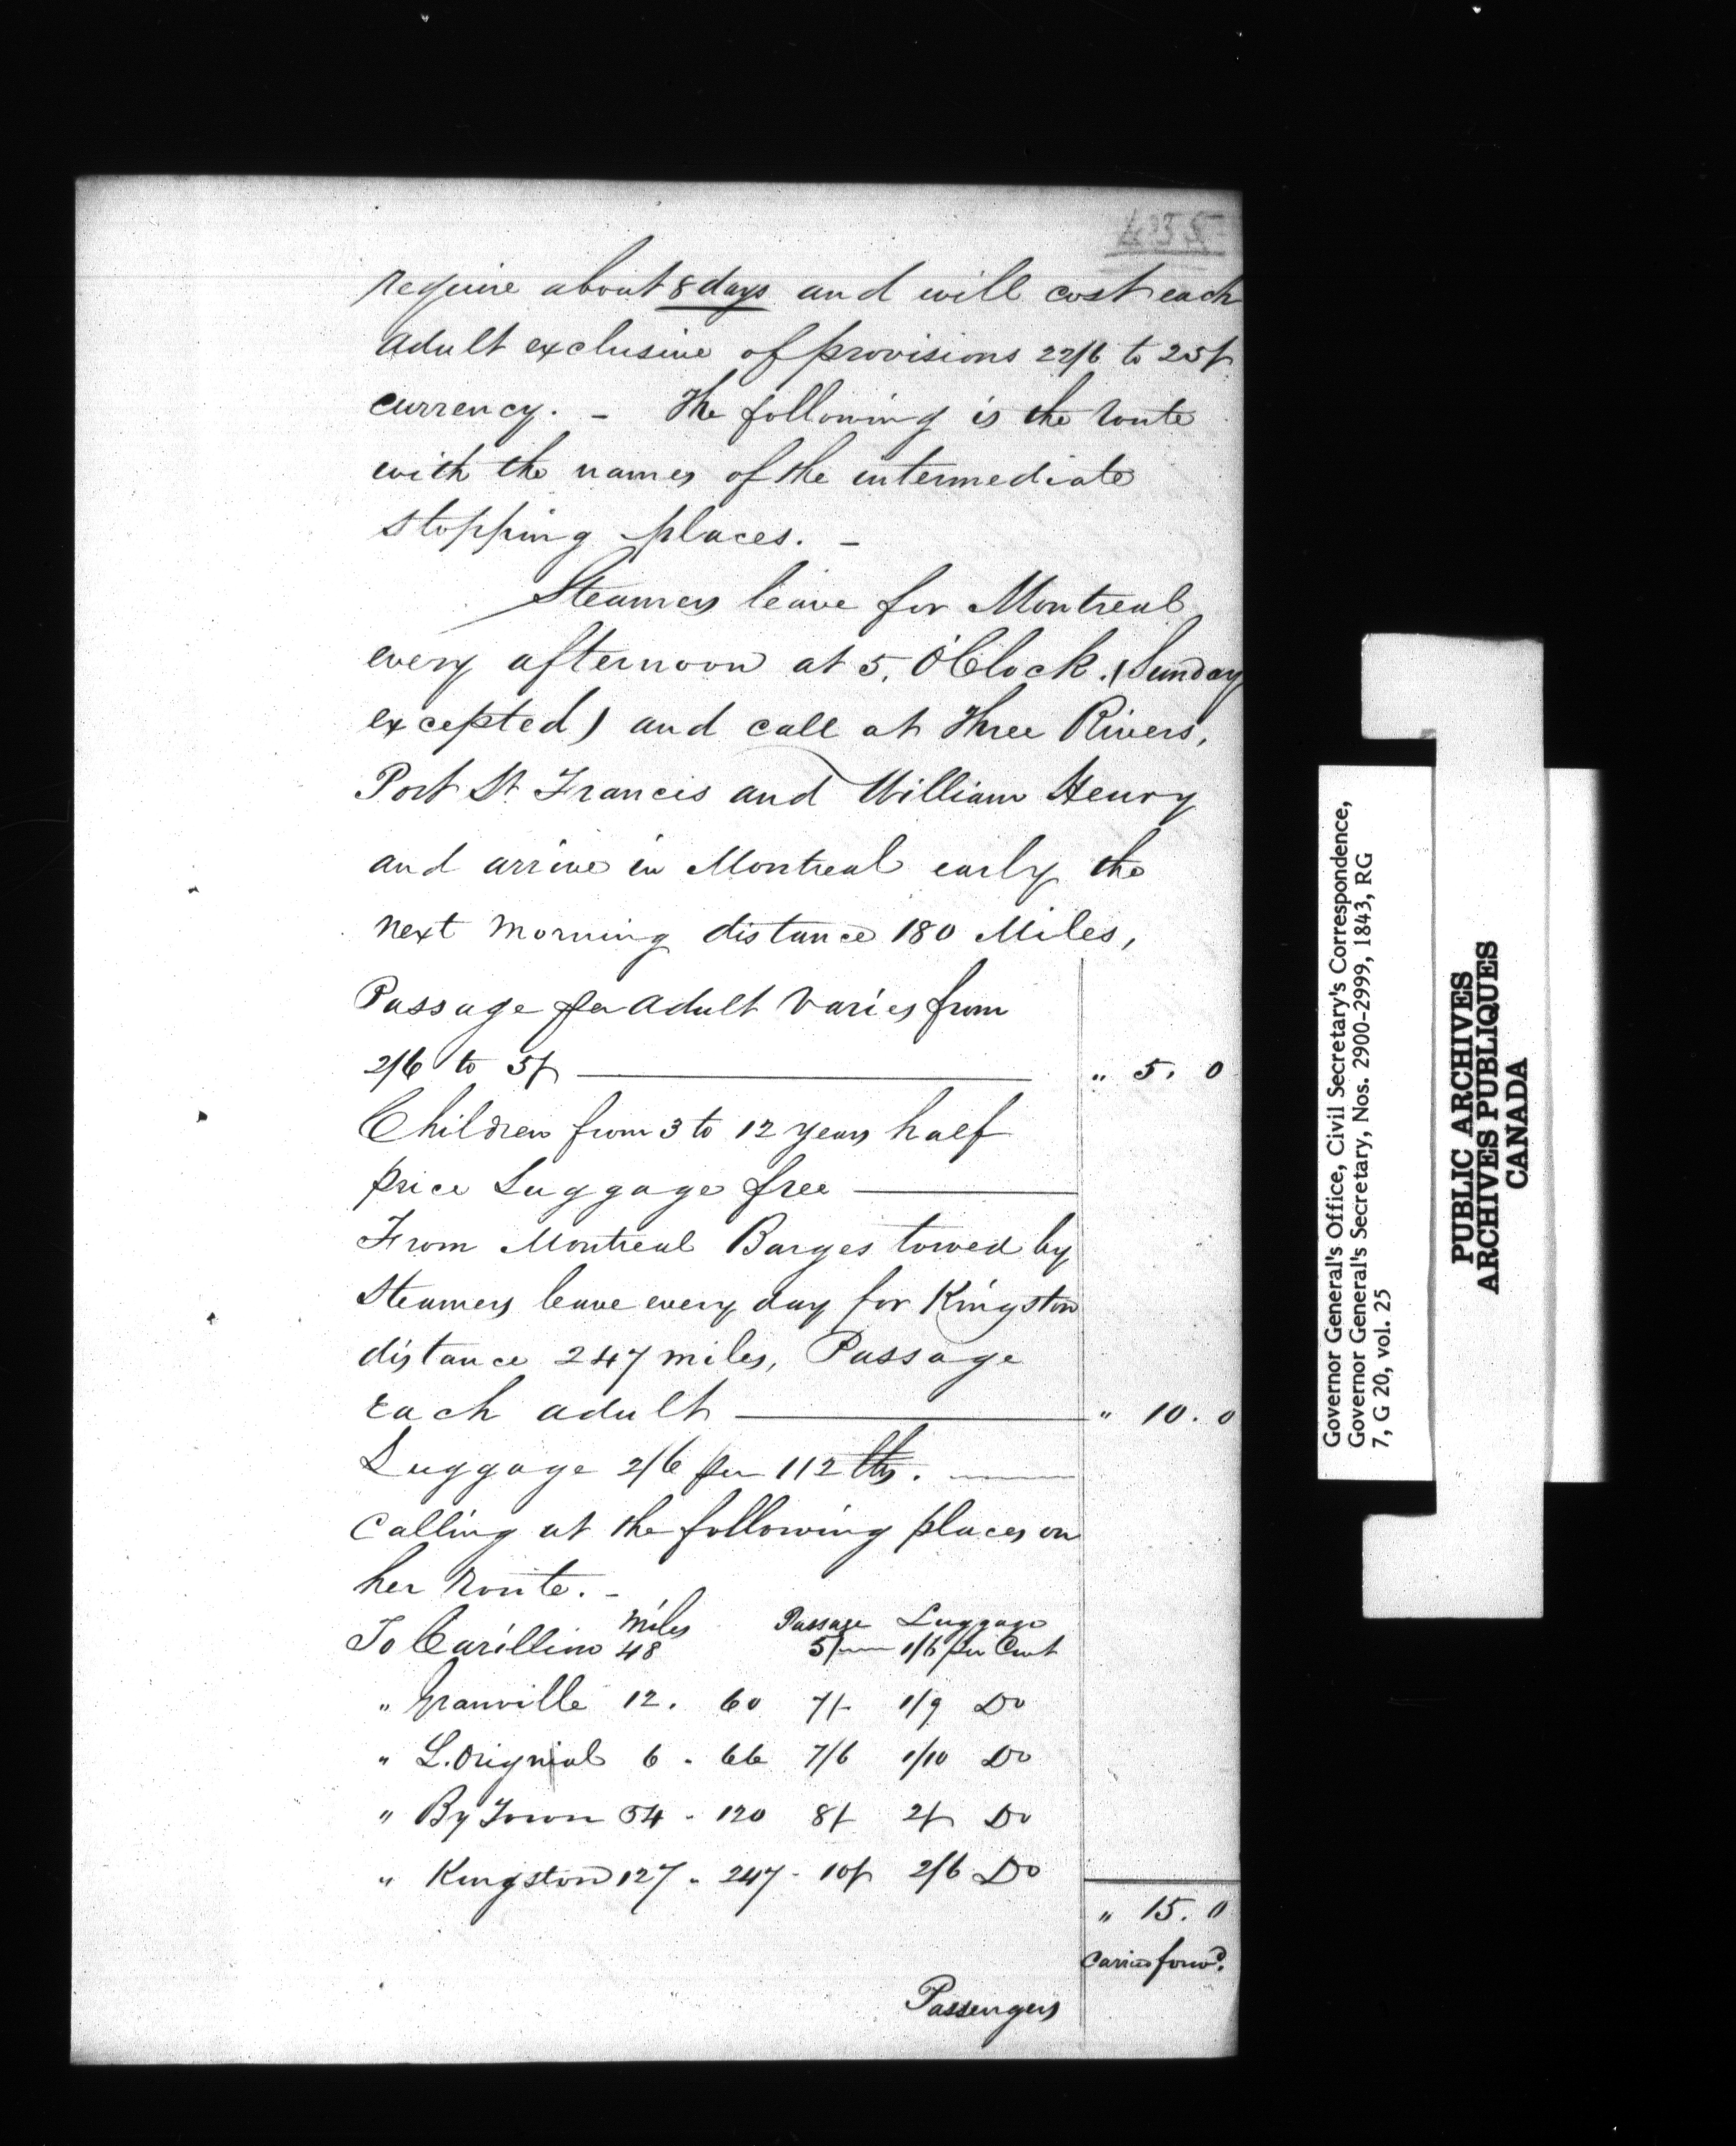 435
require about 8 days and will cost each
adult exclusive of provisions 22/6 to 25/-
currency. - The following is the route
with the names of the intermediate
stopping places. -
Steamers leave for Montreal
every afternoon at 5, O'Clock. (Sunday
excepted) and call at Three Rivers,
Port St. Francis and William Henry
and arrive in Montreal early the
next morning distance 180 Miles,
Passage per adult varies from
2/6 to 5/- " 5. 0
Children from 3 to 12 years half
price Luggage free
From Montreal Barges towed by
Steamers leave every day for Kingston
distance 247 miles, Passage
Each adult " 10. 0
Luggage 2/6 per 112 lbs.
Calling at the following places on
her route. -
Miles Passage Luggage
To Carillion 48 5/- 1/6 per Cwt
" Granville 12. 60 7/- 1/9 Do
" L.Orignial 6 - 66 7/6 1/10 Do
" By Town 54 - 120 8/- 2/- Do
" Kingston 127 - 247 - 10/- 2/6 Do
" 15. 0
Carried forwd.
Passengers
Governor General's Office, Civil Secretary's Correspondence,
Governor General's Secretary, Nos. 2900-2999, 1843, RG
7, G 20, vol. 25
PUBLIC ARCHIVES
ARCHIVES PUBLIQUES
CANADA